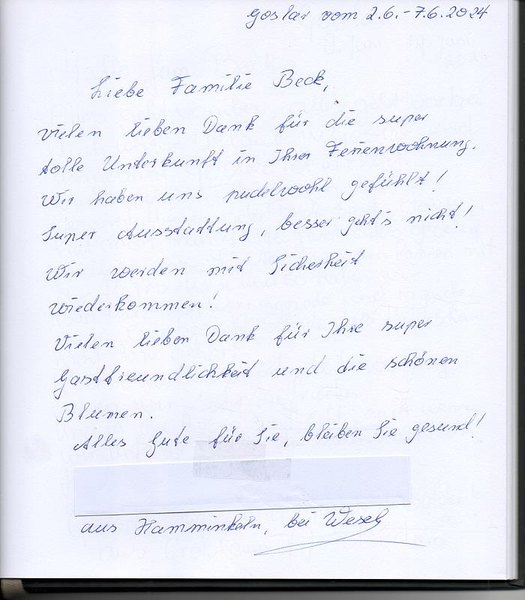 Goslar vom 2.6.-7.6.2024
Liebe Familie Beck,
vielen lieben Dank für die super
tolle Unterkunft in Ihrer Ferienwohnung.
Wir haben uns pudelwohl gefühlt!
Super Ausstattung, besser geht's nicht!
Wir werden mit Sicherheit
wiederkommen!
Vielen lieben Dank für Ihre super
Gastfreundlichkeit und die schönen
Blumen.
Alles Gute für Sie, bleiben Sie gesund!
aus Hamminkeln, bei Wesel